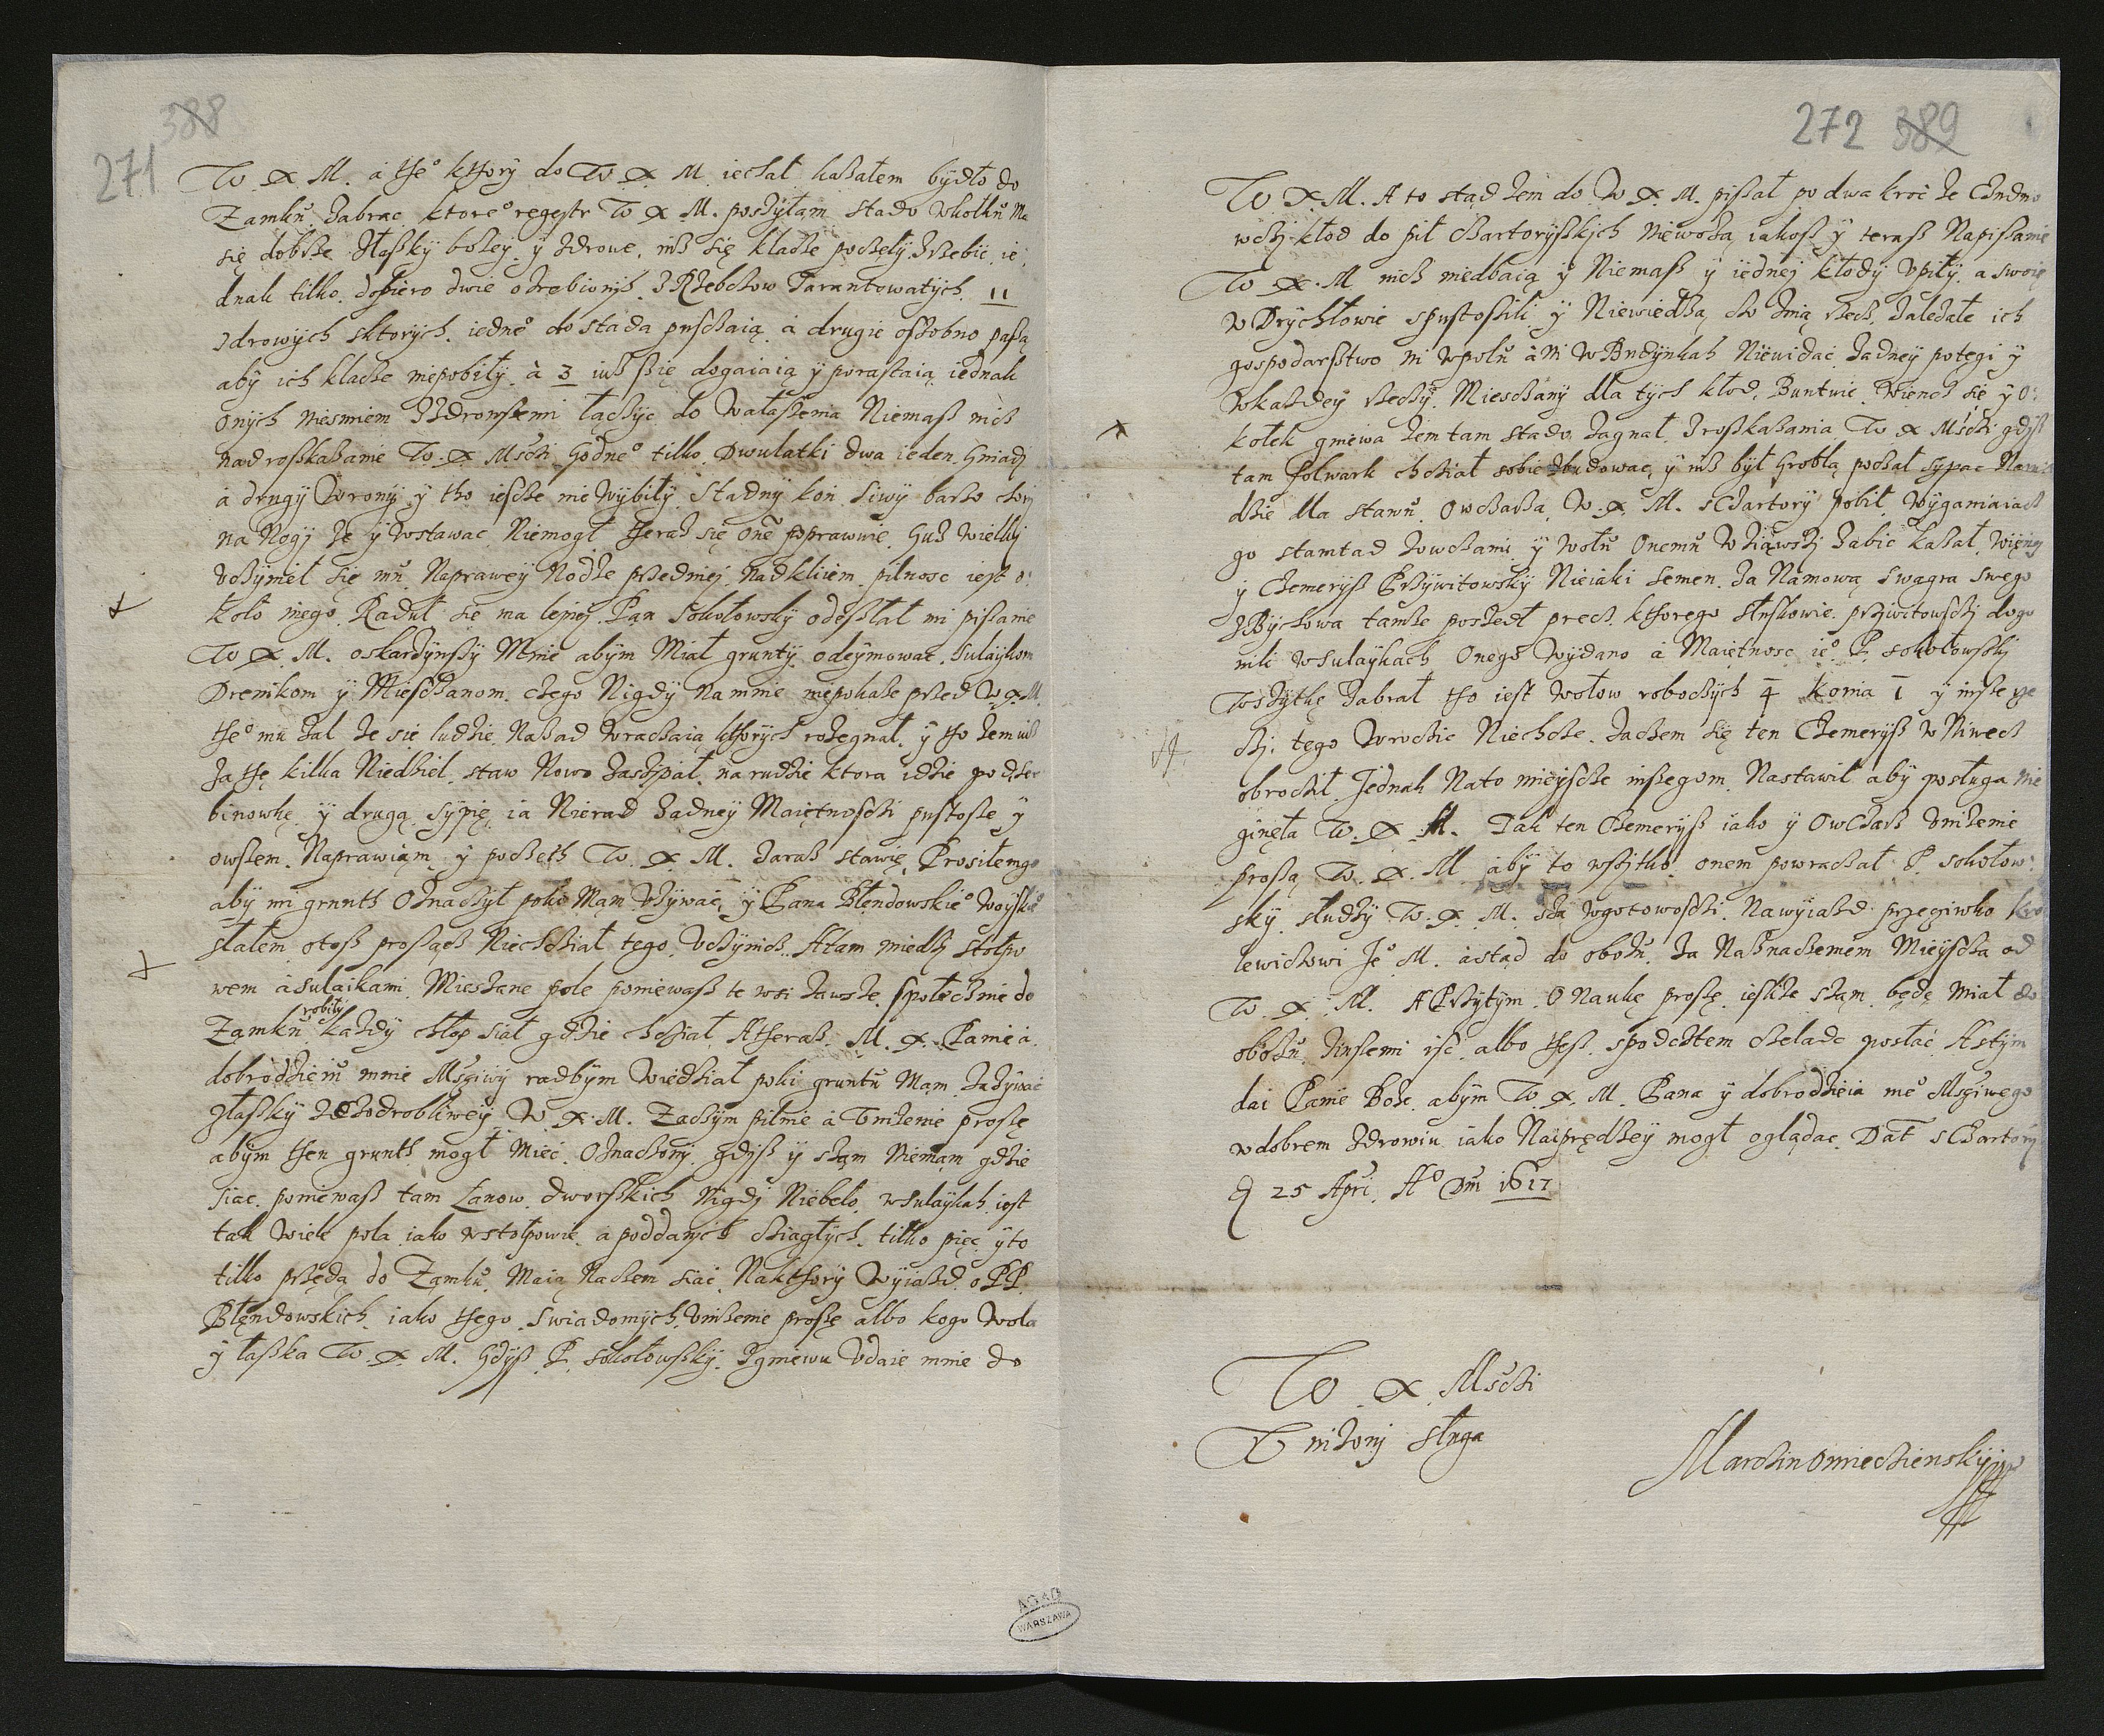 388
271
W. X. M. á the° ktory do W. X. M. iechał kaßałem bydło do
Zamku Zabrac ktore° regestr W X M. posżyłam stado Wkołku Ma
się dobże Złaßky bożey y Zdrowe, iuß się kładże poczęły Zrzebic, ie:
dnak tilko. dopiero dwie ozrebionych. Z Rżebczow Tarantowatych. 11
zdrowych sktorych. iedne° do stada puschaią á drugie ossobno paßą
aby ich kladże niepobiły á 3 iuß ßię dogaiaią y poraßtaią iednak
onych niesmiem ZZdrowßemi łączyc do Wałaßenia Niemaß nicz
nad roßkażanie W. X. Mśczi Godne° tilko. Dwulatki dwa ieden Gniadj
á drugy Wrony y tho ieszcże nie Wybiły Stadny kon Siwy barżo chorj
na Nogj że y Wstawac Niemogł theraz się one poprawuie. Guz Wielkj
Vczymił się mu Naprawey Nodże przedniej. nad kliiem pilnosc iest o:
koło niego. Raduł się ma lepiej. Pan Sokołowsky odeßłał mi pißanie
W X. M. oskardżynßy Mnie abym Miał grunty odeymowac. Sulaykom
Drenikom y Mieszczanom. czego Nigdy na mnie niepokaże przed W. X. M.
the° mu żal że sie ludzie Nazad Wraczaią kthorych rożegnał. y tho żem iuß
Za thę kilka Niedżiel. staw Nowo Zasżpał. na rudzie ktora idzie pod Ser
binowkę y drugą sypię. ia Nierad Zadney Maiętnosczi pustoße y
owßem. Naprawiam y poczeth W. X. M. Zaraß stawię. Prosiłemgo
aby mi grunth Oznaczył poko Mąm Vżywac, y Pana Błendowskie° Woyskie°
słałem. otoß proßącß Niechciał tego. Vczynicz. Atam miedzj Stołpo
wem á Sulaikami Mieszane pole poniewaß te wsi Zawsże. społecznie do
robiły
Zamku każdy chłop siał gdzie chciał. Atheraß. M. X. Panie á.
dobrodzieiu mnie Mśziwy radbym Wiedział poki gruntu Mąm Zażywac
Złaßky Szczodrobliwey W. X. M. Zaczym pilnie á Vniżenie proßę
abym then grunth mogł Miec. Oznaczony. gdyß y sżąm Niemąm gdzie
siac. poniewaß tam Łanow dworskich Nigdj Niebeło. w Sulaykah iest
tak Wiele pola iako w stołpowie a poddanych cziagłych. tilko pięc. y to
tilko przędą do Zamku. Maią Naczem siac. Nakthory Wyiażd o PP.
Błęndowskich. iako thego. Swiadomych. Vniżenie proßę albo kogo Wola
y łaßka W. X. M. Gdyß P. Sokołowßky. Zgniewu Vdaie mnie do
272 389
W X. M. A to stąd żem do W. X. M. pißał po dwa kroć że Chudno
wczj kłod do pił Czartoryßkich Niewożą iakoß y teraß Napißanie
W. X. M nicz niedbaią y Niemaß y iednej kłody Vpiły. a swoię
w Drychłowie spustosili y Niewiedzą czo znią rzecz. Zaledałe ich
gospodarßtwo ni wpolu áni w Budynkah Niewidac Zadney potęgi y
Wkażdey rzeczy. Mieszczany dla tych kłod. Buntuie. Wiencz się y O:
kołek gniewa żem tam stado Zagnał. Zroßkażania W X Mśczi gdyß
tam folwark chciał sobie zbudowac, y iuß był Groblą począł sypac Na
dzie dla stawu. Owczarza. W. X. M. sCzartory pobił. Wyganiaiącß
go stamtąd Zowczami y Wołu Onemu Wziąwszj Zabic kazał. Więncz
y Czemeryß Przywitowsky Nieiaki Semen. Za Namową Swagra Swego
ZBychowa tamże poszedł precz. kthorego Słuskowie. przywitowsczj dogo
nili w Sulaykach Onego Wydano á Maiętnosc ie° P. Sokołowsky
Wsżytkę Zabrał tho iest Wołow roboczych 4 Konia 1 y inße rze
czj. tego Wrocic Niechcże. Zaczem się ten Czemeryß w Niwecz
obrocził. Jednak Nato mieyscże inßegom. Nastawił aby posługa nie
ginęła W. X M. Tak ten Czemeryß iako y Owczarß Vniżenie
proßą W. X. M aby to wszitko. onem powraczał. P. Sokołow:
sky. słudzy W. X. M. sżą wgotowosczi. Nawyiazd przeciwko Kro
lewiczowi Je° M. á stąd do obozu. Za Naßnaczeniem Mieyscza od
W. X. M. APrzytym. O Naukę proßę. iesliże sżąm. będę Miał do
obozu. Zinßemi isć. albo theß. spocztem czeladz posłać. Astym
dai Panie Boże. abym W. X. M. Pana y dobrodzieia me° Mśziwego
wdobrem zdrowiu iako Nayprędżey mogł oglądac. Dat sCzartory
d 25 Apri A° Dni 1617
W X. Msczi
Vniżonj Sługa
Marczin Omieczienskÿ
AGAD
WARSZAWA